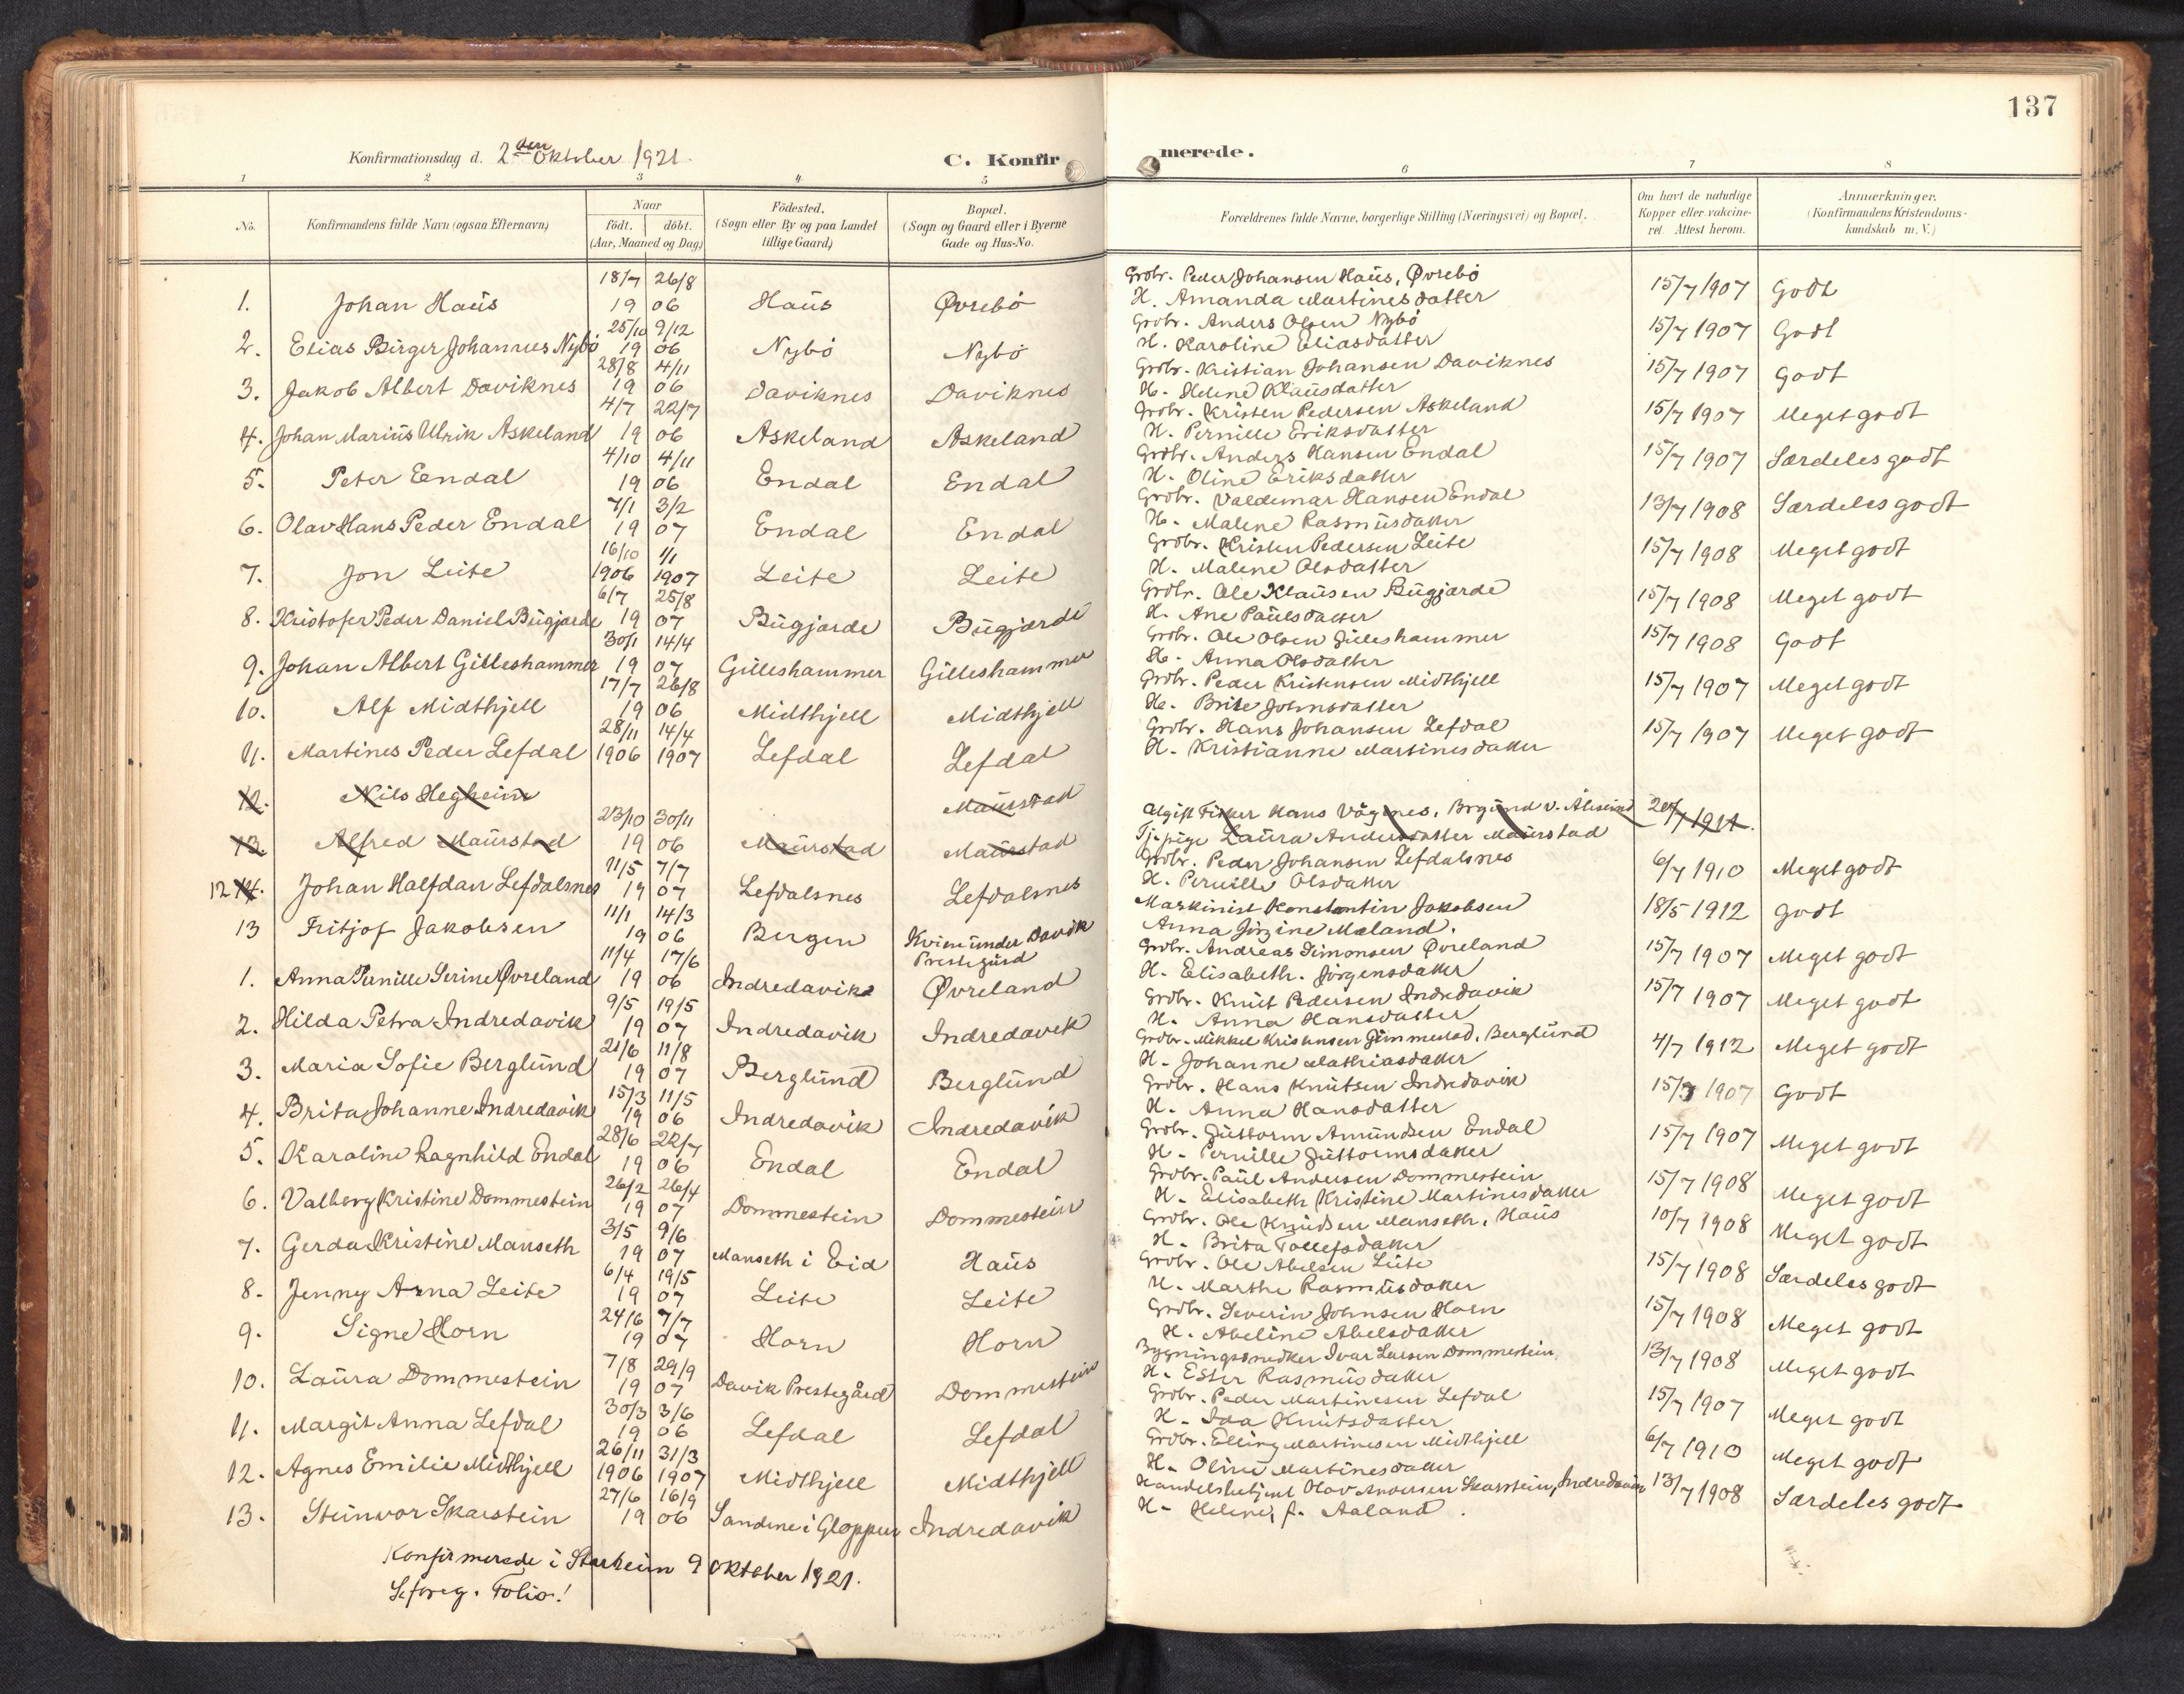 137
Konfirmationsdag d. 2den Oktober 1921.
C. Konfirmerede.
1 2 3 4 5 6 7 8
No. Konfirmandens fulde Navn (ogsaa Efternavn) Naar født. døbt. (Aar, Maaned og Dag) Födested. (Sogn eller By og paa Landet tillige Gaard) Bopæl. (Sogn og Gaard eller i Byerne Gade og Hus-No. Forældrenes fulde Navne, borgerlige Stilling (Næringsvei) og Bopæl. Om havt de naturlige Kopper eller vakcineret. Attest herom. Anmærkninger. (Konfirmandens Kristendomskundskab m. V.)
1. Johan Haus 18/7 1906 26/8 Haus Øvrebö Grbr. Peder Johansen Haus, Øvrebö 15/7 1907 Godt
H. Amanda Martinesdatter
2. Elias Birger Johannes Nybö 25/10 1906 9/12 Nybö Nybö Grbr. Anders Olsen Nybö 15/7 1907 Godt
H. Karoline Eliasdatter
3. Jakob Albert Daviknes 28/8 1906 4/11 Daviknes Daviknes Grbr. Kristian Johansen Daviknes 15/7 1907 Godt
H. Helene Klausdatter
4. Johan Marius Ulrik Askeland 4/7 1906 22/7 Askeland Askeland Grbr. Kristen Pedersen Askeland 15/7 1907 Meget godt
H. Pernille Eriksdatter
5. Peter Endal 4/10 1906 4/11 Endal Endal Grbr. Anders Hansen Endal 15/7 1907 Særdeles godt
H. Oline Eriksdatter
6. Olav Hans Peder Endal 7/1 1907 3/2 Endal Endal Grbr. Valdemar Hansen Endal 13/7 1908 Særdeles godt
H. Malene Rasmusdatter
7. Jon Leite 16/10 1906 1/1 1907 Leite Leite Grbr. Kristen Pedersen Leite 15/7 1908 Meget godt
H. Malene Olsdatter
8. Kristofer Peder Daniel Bugjarde 6/7 1907 25/8 Bugjarde Bugjarde Grbr. Ole Klausen Bugjarde 15/7 1908 Meget godt
H. Ane Paulsdatter
9. Johan Albert Gilleshammer 30/1 1907 14/4 Gilleshammer Gilleshammer Grbr. Ole Olsen Gilleshammer 15/7 1908 Godt
H. Anna Olsdatter
10. Alf Midthjell 17/7 1906 26/8 Midthjell Midthjell Grbr. Peder Kristensen Midthjell 15/7 1907 Meget godt
H. Brite Johnsdatter
11. Martines Peder Lefdal 28/11 1906 14/4 1907 Lefdal Lefdal Grbr. Hans Johansen Lefdal 15/7 1907 Meget godt
H. Kristianne Martinesdatter
12. Nils Hegheim Maurstad
13. Alfred Maurstad 23/10 1906 30/11 Maurstad Maurstad Ugift Fisker Hans Vågenes, Borgund v. Ålesund 20/7 1911.
Tj. pige Laura Andersdatter Maurstad
12 14. Johan Halfdan Lefdalsnes 11/5 1907 7/7 Lefdalsnes Lefdalsnes Grbr. Peder Johansen Lefdalsnes 6/7 1910 Meget godt
H. Pernille Olsdatter
13 Fritjof Jakobsen 11/1 1906 14/3 Bergen Kvien under Davik Prestegård Maskinist Konstantin Jakobsen 18/5 1912 Godt
Anna Jörgine Mæland.
1. Anna Pernille Serine Øvreland 11/4 1906 17/6 Indredavik Øvreland Grbr. Andreas Simonsen Øvreland 15/7 1907 Meget godt
H. Elisabeth. Jörgensdatter
2. Hilda Petra Indredavik 9/5 1907 19/5 Indredavik Indredavik Grbr. Knut Pedersen Indredavik 15/7 1907 Meget godt
H. Anna Hansdatter
3. Maria Sofie Berglund 21/6 1907 11/8 Berglund Berglund Grbr. Mikkel Kristensen Gimmestad, Berglund 4/7 1912 Meget godt
H. Johanne Mathiasdatter
4. Brita Johanne Indredavik 15/3 1906 11/5 Indredavik Indredavik Grbr. Hans Knutsen Indredavik 15/7 1907 Godt
H. Anna Hansdatter
5. Karoline Ragnhild Endal 28/6 1906 22/7 Endal Endal Grbr. Guttorm Amundsen Endal 15/7 1907 Meget godt
H. Pernille Guttormsdatter
6. Valborg Kristine Dommestein 26/2 1907 26/4 Dommestein Dommestein Grbr. Paul Andersen Dommestein 15/7 1908 Meget godt
H. Elisabeth Kristine Martinesdatter
7. Gerda Kristine Manseth 3/5 1907 9/6 Manseth i Eid Haus Grbr. Ole Knudsen Manseth, Haus 10/7 1908 Meget godt
H. Brita Tollefsdatter
8. Jenny Arna Leite 6/4 1907 19/5 Leite Leite Grbr. Ole Abelsen Leite 15/7 1908 Særdeles godt
H. Marthe Rasmusdatter
9. Signe Horn 24/6 1907 7/7 Horn Horn Grbr. Severin Johnsen Horn 15/7 1908 Meget godt
H. Abeline Abelsdatter
10. Laura Dommestein 7/8 1907 29/9 Davik Prestegård Dommestein Bygningssnedker Ivar Larsen Dommestein. 13/7 1908 Meget godt
H. Ester Rasmusdatter
11. Margit Anna Lefdal 30/3 1906 3/6 Lefdal Lefdal Grbr. Peder Martinesen Lefdal 15/7 1907 Meget godt
H. Ida Knutsdatter
12. Agnes Emilie Midthjell 26/11 1906 31/3 1907 Midthjell Midthjell Grbr. Elling Martinesen Midthjell 6/7 1910 Meget godt
H. Oline Martinesdatter
13. Steinvor Skarstein 27/6 1906 16/9 Sandene i Gloppen Indredavik Handelsbetjent Olav Andersen Skarstein, Indredavik 13/7 1908 Særdeles godt
H. Helene, f. Aaland.
Konfirmerede i Starheim 9 Oktober 1921.
Se foreg. Folio!